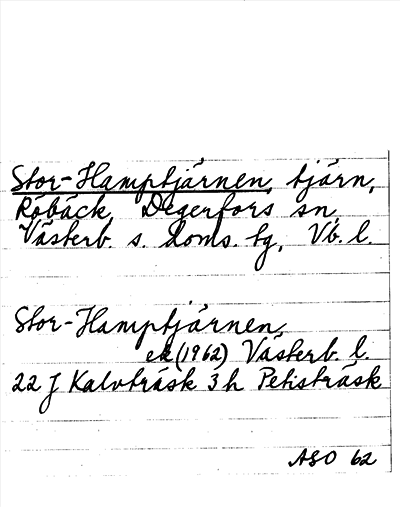 Stor-Hamptjärnen, tjärn,
Röbäck, Degerfors sn,
Västerb. s. doms. tg, Vb. l.
Stor-Hamptjärnen,
ek (1962) Västerb. l.
22 J Kalvträsk 3 h Petisträsk
ASO 62